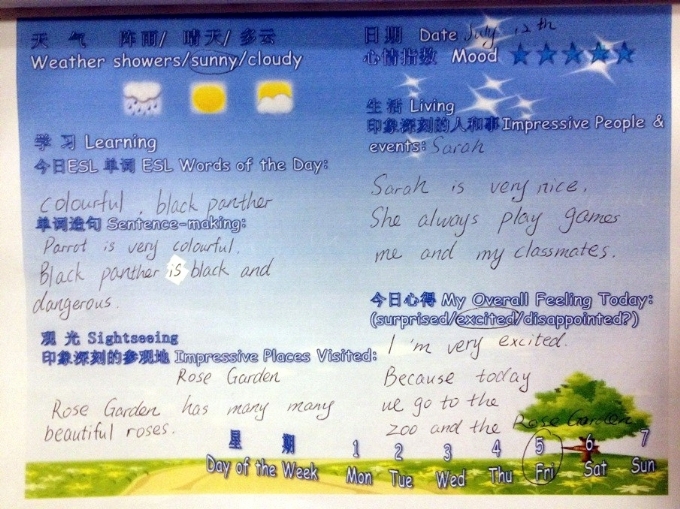 天 气 阵雨/ 晴天/ 多云
Weather showers/sunny/cloudy
日期 Date July 12th
心情指数 Mood
学 习 Learning
今日ESL 单词 ESL Words of the Day:
colourful , black panther
单词造句 Sentence-making:
Parrot is very colourful.
Black panther is black and
dangerous.
观 光 Sightseeing
印象深刻的参观地 Impressive Places Visited:
Rose Garden
Rose Garden has many many
beautiful roses.
生 活 Living
印象深刻的人和事 Impressive People &
events: Sarah
Sarah is very nice.
She always play games
me and my classmates.
今日心得 My Overall Feeling Today:
(surprised/excited/disappointed?)
I 'm very excited.
Because today
we go to the
zoo and the Rose Garden
星 期 1 2 3 4 5 6 7
Day of the Week Mon Tue Wed Thu Fri Sat Sun